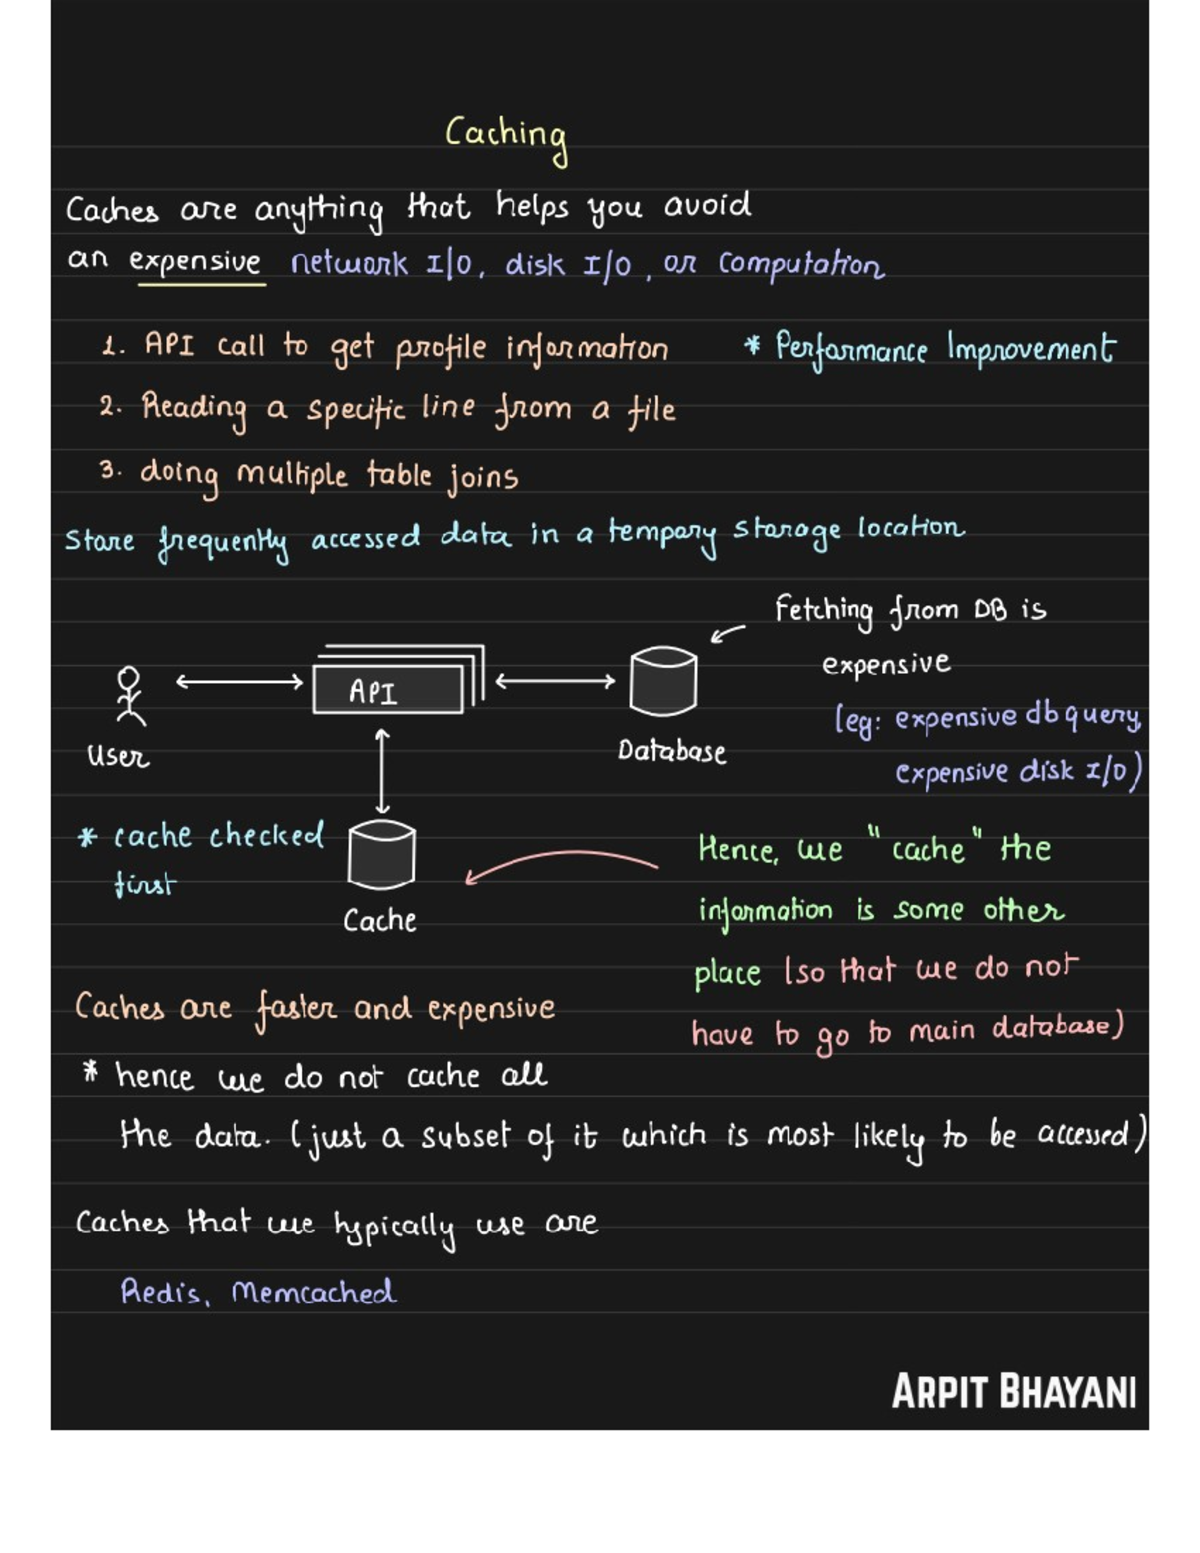 Caching
Caches are anything that helps you avoid
an expensive network I/O, disk I/O, or computation
1. API call to get profile information
* Performance Improvement
2. Reading a specific line from a file
3. doing multiple table joins
Store frequently accessed data in a tempory storage location
Fetching from DB is
expensive
(eg: expensive db query,
expensive disk I/O)
User
API
Database
* cache checked
first
Cache
Hence, we "cache" the
information is some other
place (so that we do not
have to go to main database)
Caches are faster and expensive
* hence we do not cache all
the data. (just a subset of it which is most likely to be accessed)
Caches that we typically use are
Redis, Memcached
ARPIT BHAYANI